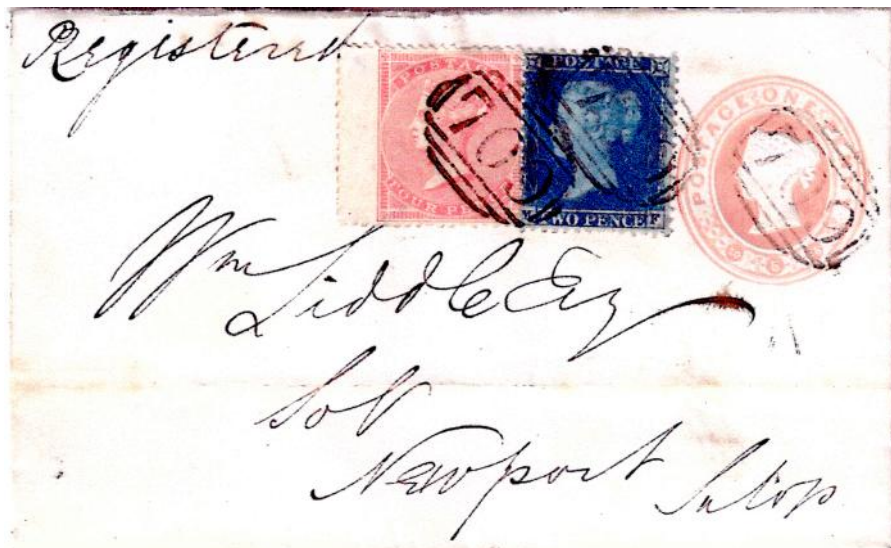 Registered
POSTAGE
FOUR PE
POSTAGE
TWO PENCE F
POSTAGE ONE
709
Wm Liddle Esq
Solr
Newport Salop